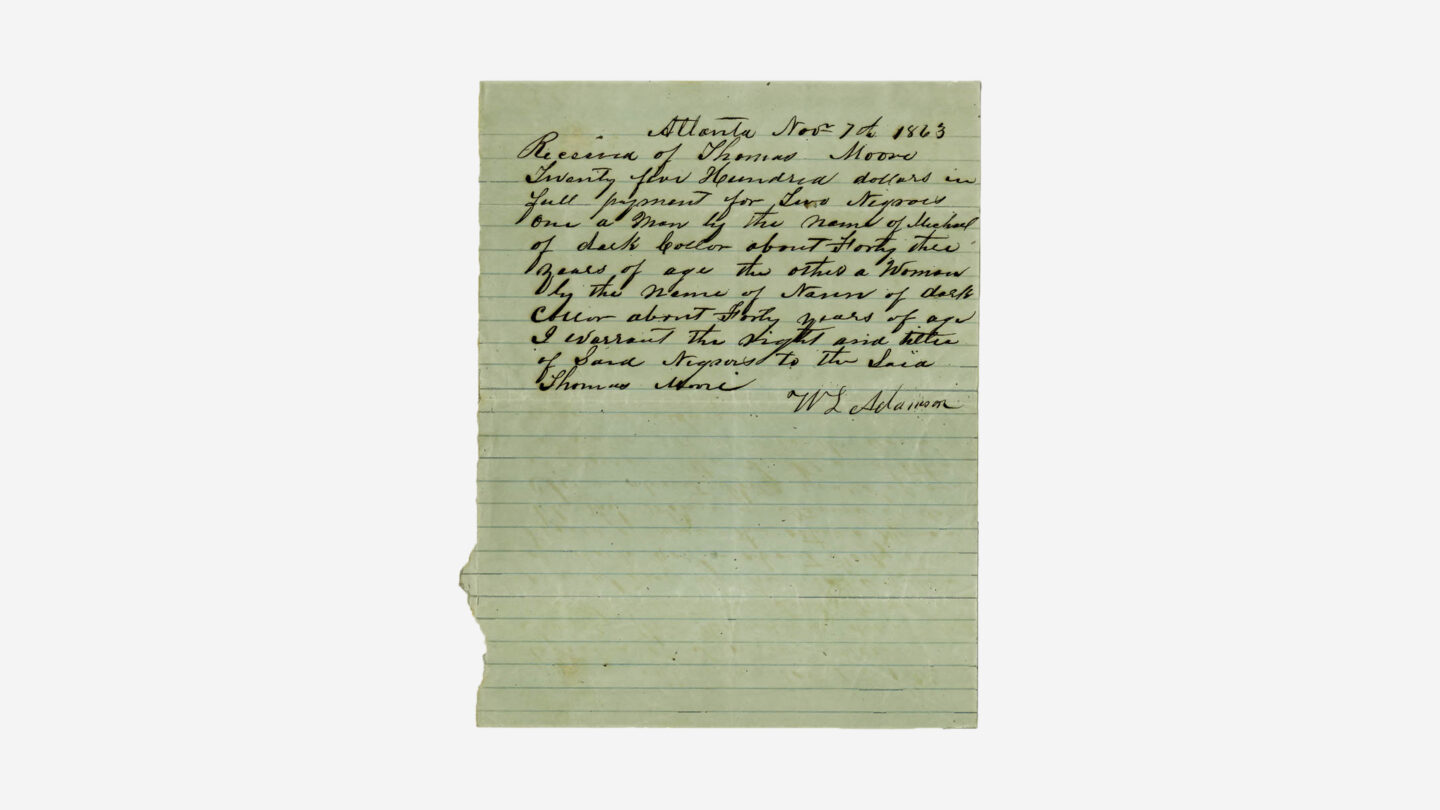 Atlanta Novr 7th 1863
Received of Thomas Moore
Twenty five Hundred dollars in
full payment for Two Negroes
One a Man by the name of Michael
of dark Collor about Forty three
years of age the other a Woman
by the name of Nann of dark
Collor about Forty years of age
I warrant the right and title
of Said Negroes to the Said
Thomas Moore
W L Adamson